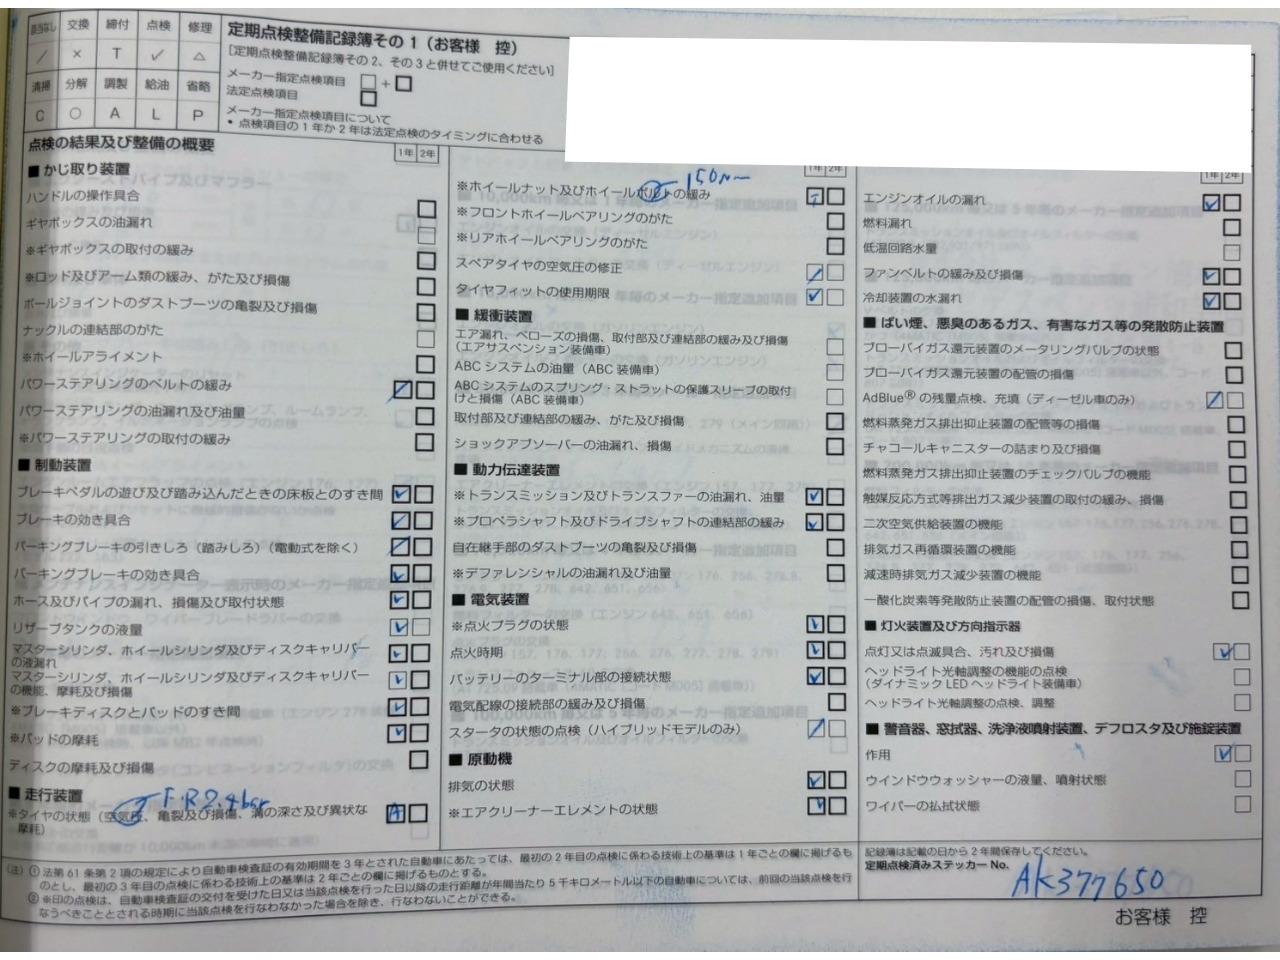 該当なし 交換 締付 点検 修理
/ × T ✓ △
清掃 分解 調製 給油 省略
C ○ A L P
定期点検整備記録簿その1（お客様 控）
［定期点検整備記録簿その2、その3と併せてご使用ください］
メーカー指定点検項目 □ + □
法定点検項目 □
メーカー指定点検項目について
• 点検項目の1年か2年は法定点検のタイミングに合わせる
点検の結果及び整備の概要
1年 2年
■ かじ取り装置
ハンドルの操作具合
ギヤボックスの油漏れ
※ギヤボックスの取付の緩み
※ロッド及びアーム類の緩み、がた及び損傷
ボールジョイントのダストブーツの亀裂及び損傷
ナックルの連結部のがた
※ホイールアライメント
パワーステアリングのベルトの緩み /
パワーステアリングの油漏れ及び油量
※パワーステアリングの取付の緩み
■ 制動装置
ブレーキペダルの遊び及び踏み込んだときの床板とのすき間 ✓
ブレーキの効き具合 ✓
パーキングブレーキの引きしろ（踏みしろ）（電動式を除く） /
パーキングブレーキの効き具合 ✓
ホース及びパイプの漏れ、損傷及び取付状態 ✓
リザーブタンクの液量 ✓
マスターシリンダ、ホイールシリンダ及びディスクキャリパー
の液漏れ ✓
マスターシリンダ、ホイールシリンダ及びディスクキャリパー
の機能、摩耗及び損傷 ✓
※ブレーキディスクとパッドのすき間 ✓
※パッドの摩耗 ✓
ディスクの摩耗及び損傷
■ 走行装置
F.R 2.4bar
※タイヤの状態（空気圧、亀裂及び損傷、溝の深さ及び異状な A
摩耗）
1年 2年
150N
※ホイールナット及びホイールボルトの緩み T
※フロントホイールベアリングのがた
※リアホイールベアリングのがた
スペアタイヤの空気圧の修正 /
タイヤフィットの使用期限 ✓
■ 緩衝装置
エア漏れ、ベローズの損傷、取付部及び連結部の緩み及び損傷
（エアサスペンション装備車）
ABCシステムの油量（ABC装備車）
ABCシステムのスプリング・ストラットの保護スリーブの取付
けと損傷（ABC装備車）
取付部及び連結部の緩み、がた及び損傷
ショックアブソーバーの油漏れ、損傷
■ 動力伝達装置
※トランスミッション及びトランスファーの油漏れ、油量 ✓
※プロペラシャフト及びドライブシャフトの連結部の緩み ✓
自在継手部のダストブーツの亀裂及び損傷
※デファレンシャルの油漏れ及び油量
■ 電気装置
※点火プラグの状態 ✓
点火時期 ✓
バッテリーのターミナル部の接続状態 ✓
電気配線の接続部の緩み及び損傷
スタータの状態の点検（ハイブリッドモデルのみ） /
■ 原動機
排気の状態 ✓
※エアクリーナーエレメントの状態 ✓
1年 2年
エンジンオイルの漏れ ✓
燃料漏れ
低温回路水量
ファンベルトの緩み及び損傷 ✓
冷却装置の水漏れ ✓
■ ばい煙、悪臭のあるガス、有害なガス等の発散防止装置
ブローバイガス還元装置のメータリングバルブの状態
ブローバイガス還元装置の配管の損傷
AdBlue®の残量点検、充填（ディーゼル車のみ） /
燃料蒸発ガス排出抑止装置の配管等の損傷
チャコールキャニスターの詰まり及び損傷
燃料蒸発ガス排出抑止装置のチェックバルブの機能
触媒反応方式等排出ガス減少装置の取付の緩み、損傷
二次空気供給装置の機能
排気ガス再循環装置の機能
減速時排気ガス減少装置の機能
一酸化炭素等発散防止装置の配管の損傷、取付状態
■ 灯火装置及び方向指示器
点灯又は点滅具合、汚れ及び損傷 ✓
ヘッドライト光軸調整の機能の点検
（ダイナミックLEDヘッドライト装備車）
ヘッドライト光軸調整の点検、調整
■ 警音器、窓拭器、洗浄液噴射装置、デフロスタ及び施錠装置
作用 ✓
ウインドウウォッシャーの液量、噴射状態
ワイパーの払拭状態
（注）①法第61条第2項の規定により自動車検査証の有効期間を3年とされた自動車にあたっては、最初の2年目の点検に係わる技術上の基準は1年ごとの欄に掲げるも
のとし、最初の3年目の点検に係わる技術上の基準は2年ごとの欄に掲げるものとする。
②※印の点検は、自動車検査証の交付を受けた日又は当該点検を行った日以降の走行距離が年間当たり5千キロメートル以下の自動車については、前回の当該点検を行
なうべきこととされる時期に当該点検を行なわなかった場合を除き、行なわないことができる。
記録簿は記載の日から2年間保存してください。
定期点検済みステッカーNo.
AK377650
お客様 控